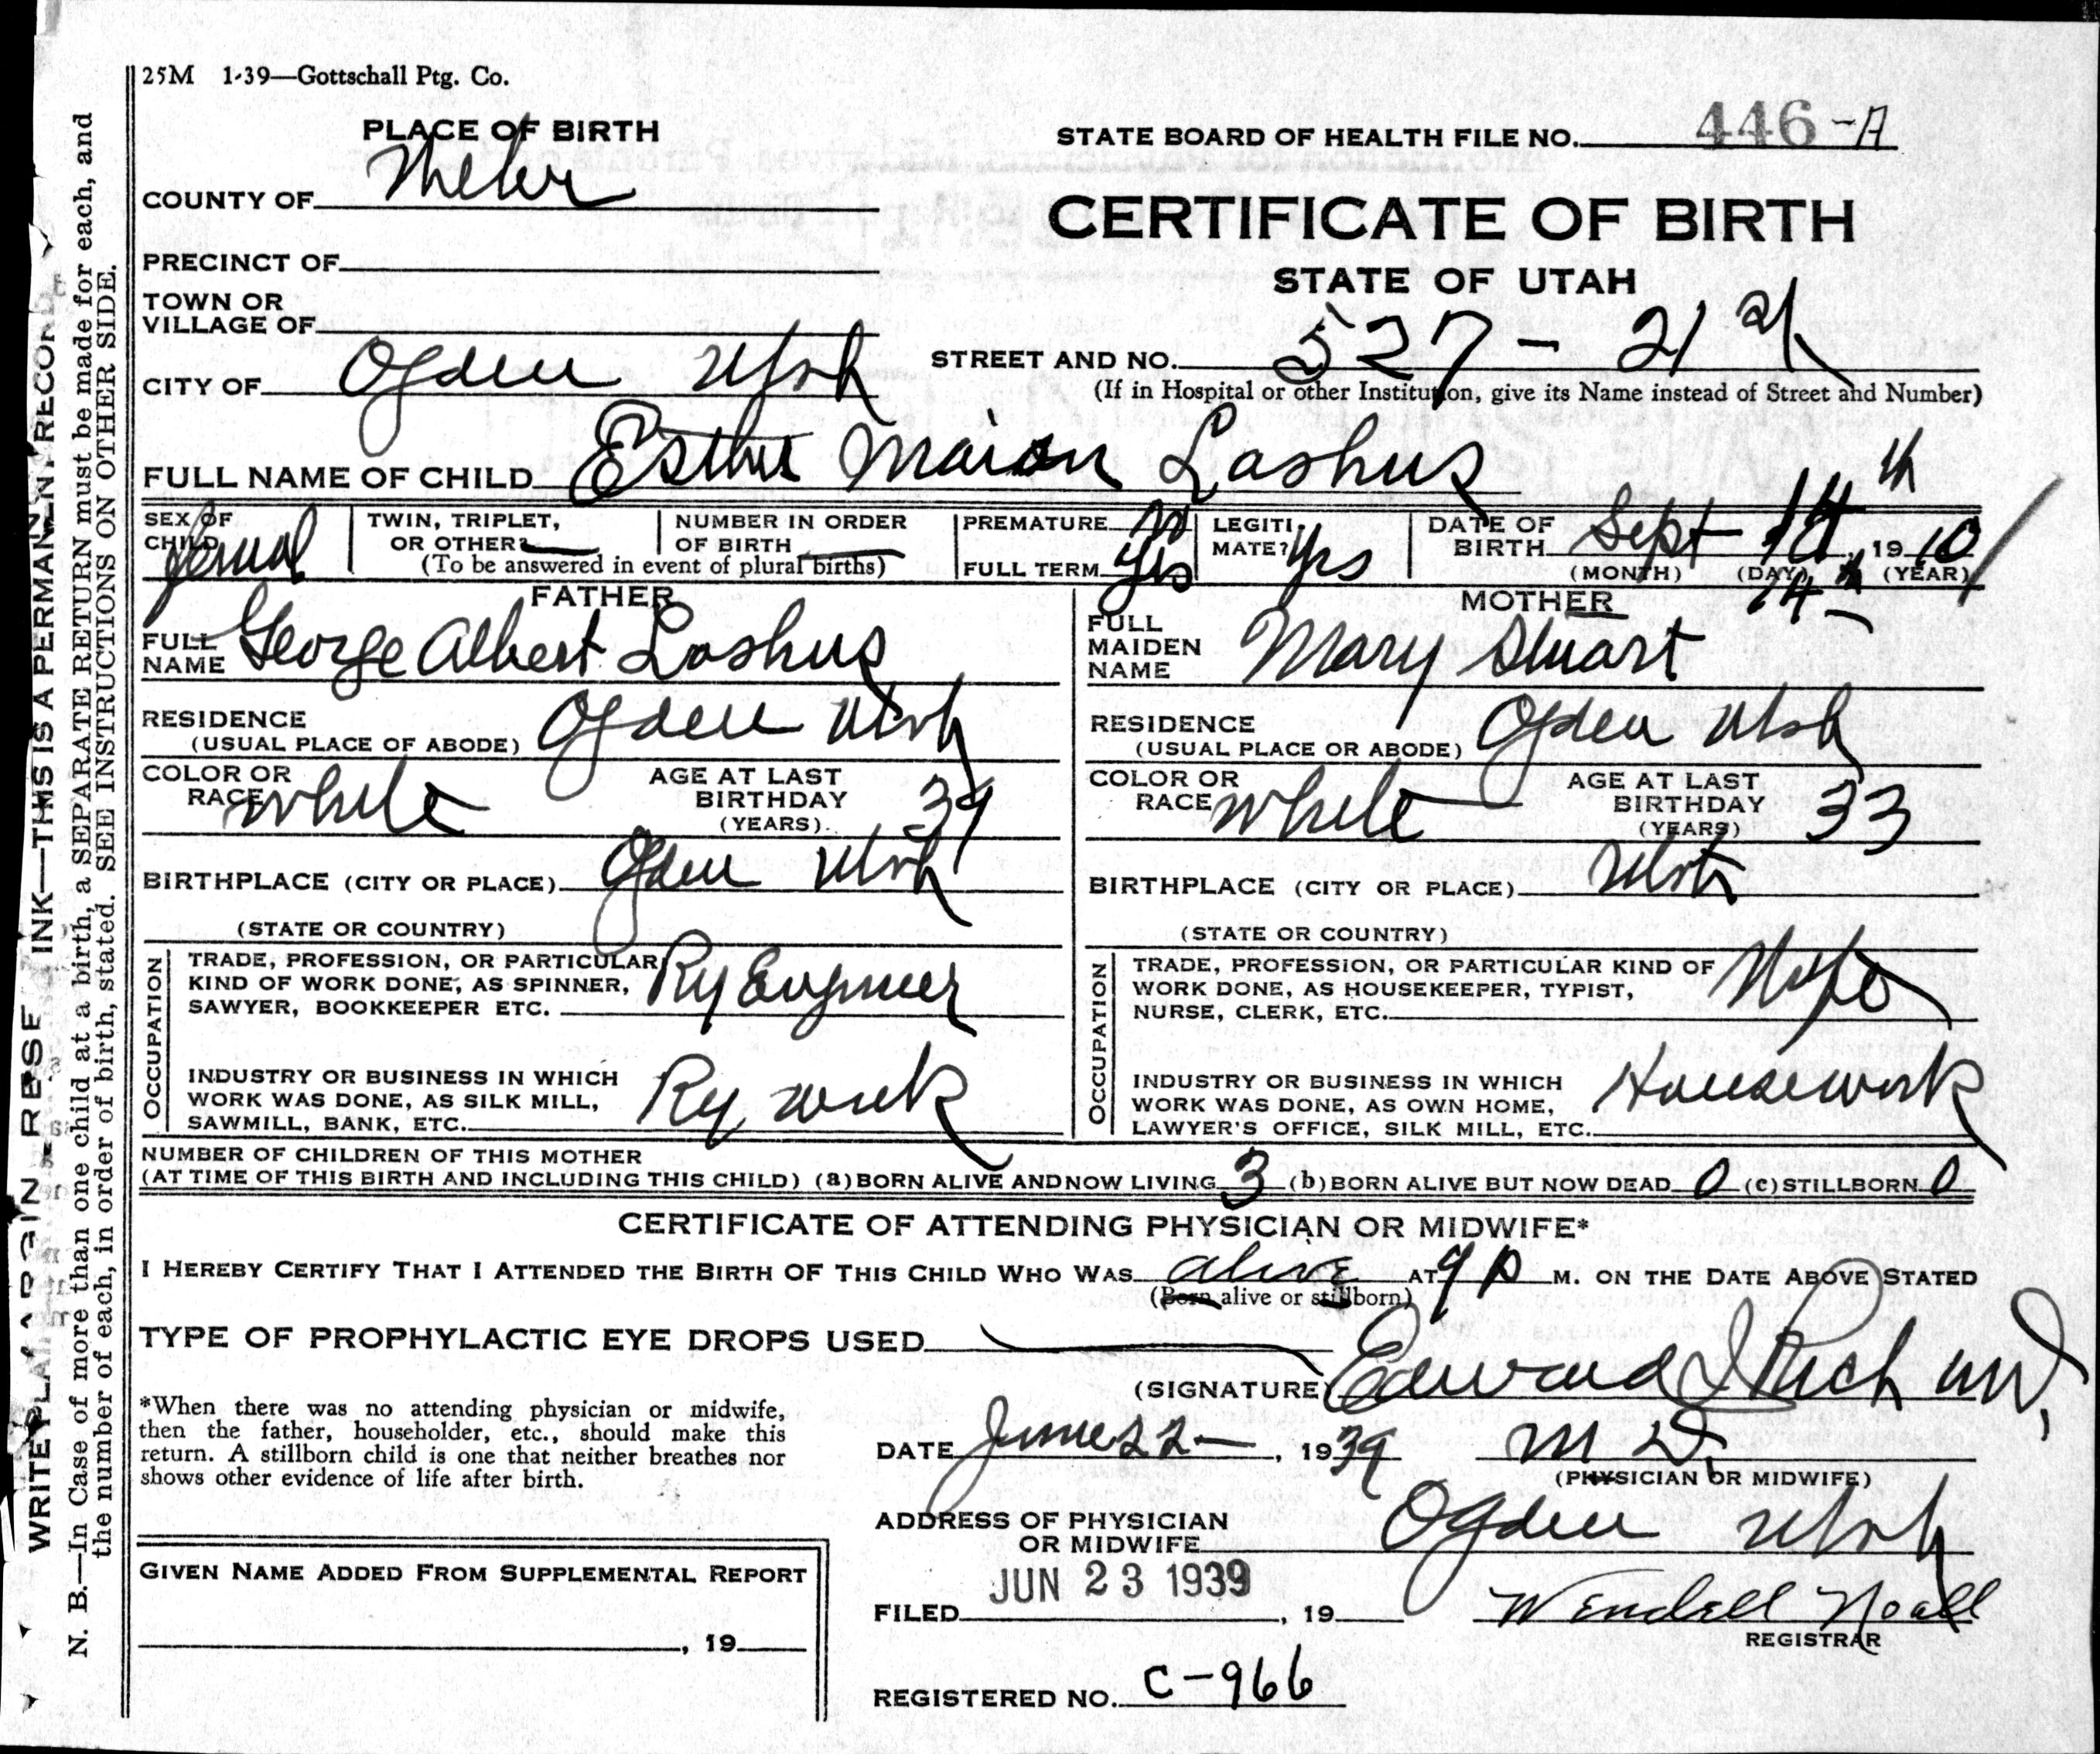 25M 1-39—Gottschall Ptg. Co.
PLACE OF BIRTH
STATE BOARD OF HEALTH FILE NO. 446-A
COUNTY OF Weber
CERTIFICATE OF BIRTH
PRECINCT OF
STATE OF UTAH
TOWN OR
VILLAGE OF
CITY OF Ogden Utah
STREET AND NO. 527 - 21 st
(If in Hospital or other Institution, give its Name instead of Street and Number)
FULL NAME OF CHILD Esther Marion Lashus
SEX OF
CHILD Femal
TWIN, TRIPLET,
OR OTHER?
NUMBER IN ORDER
OF BIRTH
(To be answered in event of plural births)
PREMATURE no
FULL TERM yes
LEGITI-
MATE? yes
DATE OF
BIRTH Sept 14 th 1910
(MONTH) (DAY) (YEAR)
14th
FATHER
FULL
NAME George Albert Lashus
RESIDENCE
(USUAL PLACE OF ABODE) Ogden Utah
COLOR OR
RACE White
AGE AT LAST
BIRTHDAY 39
(YEARS)
BIRTHPLACE (CITY OR PLACE) Ogden Utah
(STATE OR COUNTRY)
OCCUPATION
TRADE, PROFESSION, OR PARTICULAR
KIND OF WORK DONE, AS SPINNER,
SAWYER, BOOKKEEPER ETC. Ry Engineer
INDUSTRY OR BUSINESS IN WHICH
WORK WAS DONE, AS SILK MILL,
SAWMILL, BANK, ETC. Ry work
MOTHER
FULL
MAIDEN
NAME Mary Stuart
RESIDENCE
(USUAL PLACE OR ABODE) Ogden Utah
COLOR OR
RACE White
AGE AT LAST
BIRTHDAY 33
(YEARS)
BIRTHPLACE (CITY OR PLACE) Utah
(STATE OR COUNTRY)
OCCUPATION
TRADE, PROFESSION, OR PARTICULAR KIND OF
WORK DONE, AS HOUSEKEEPER, TYPIST,
NURSE, CLERK, ETC. Wife
INDUSTRY OR BUSINESS IN WHICH
WORK WAS DONE, AS OWN HOME,
LAWYER'S OFFICE, SILK MILL, ETC. Housework
NUMBER OF CHILDREN OF THIS MOTHER
(AT TIME OF THIS BIRTH AND INCLUDING THIS CHILD) (a) BORN ALIVE AND NOW LIVING 3 (b) BORN ALIVE BUT NOW DEAD 0 (c) STILLBORN 0
CERTIFICATE OF ATTENDING PHYSICIAN OR MIDWIFE*
I HEREBY CERTIFY THAT I ATTENDED THE BIRTH OF THIS CHILD WHO WAS alive AT 9 P M. ON THE DATE ABOVE STATED
(Born alive or stillborn)
TYPE OF PROPHYLACTIC EYE DROPS USED
(SIGNATURE) Edward I Rich MD.
*When there was no attending physician or midwife,
then the father, householder, etc., should make this
return. A stillborn child is one that neither breathes nor
shows other evidence of life after birth.
DATE June 22, 1939
M D.
(PHYSICIAN OR MIDWIFE)
ADDRESS OF PHYSICIAN
OR MIDWIFE Ogden Utah
GIVEN NAME ADDED FROM SUPPLEMENTAL REPORT
, 19
JUN 23 1939
FILED , 19
Wendell Noall
REGISTRAR
REGISTERED NO. C-966
WRITE PLAINLY INK—THIS IS A PERMANENT RECORD
N. B.—In Case of more than one child at a birth, a SEPARATE RETURN must be made for each, and
the number of each, in order of birth, stated. SEE INSTRUCTIONS ON OTHER SIDE.